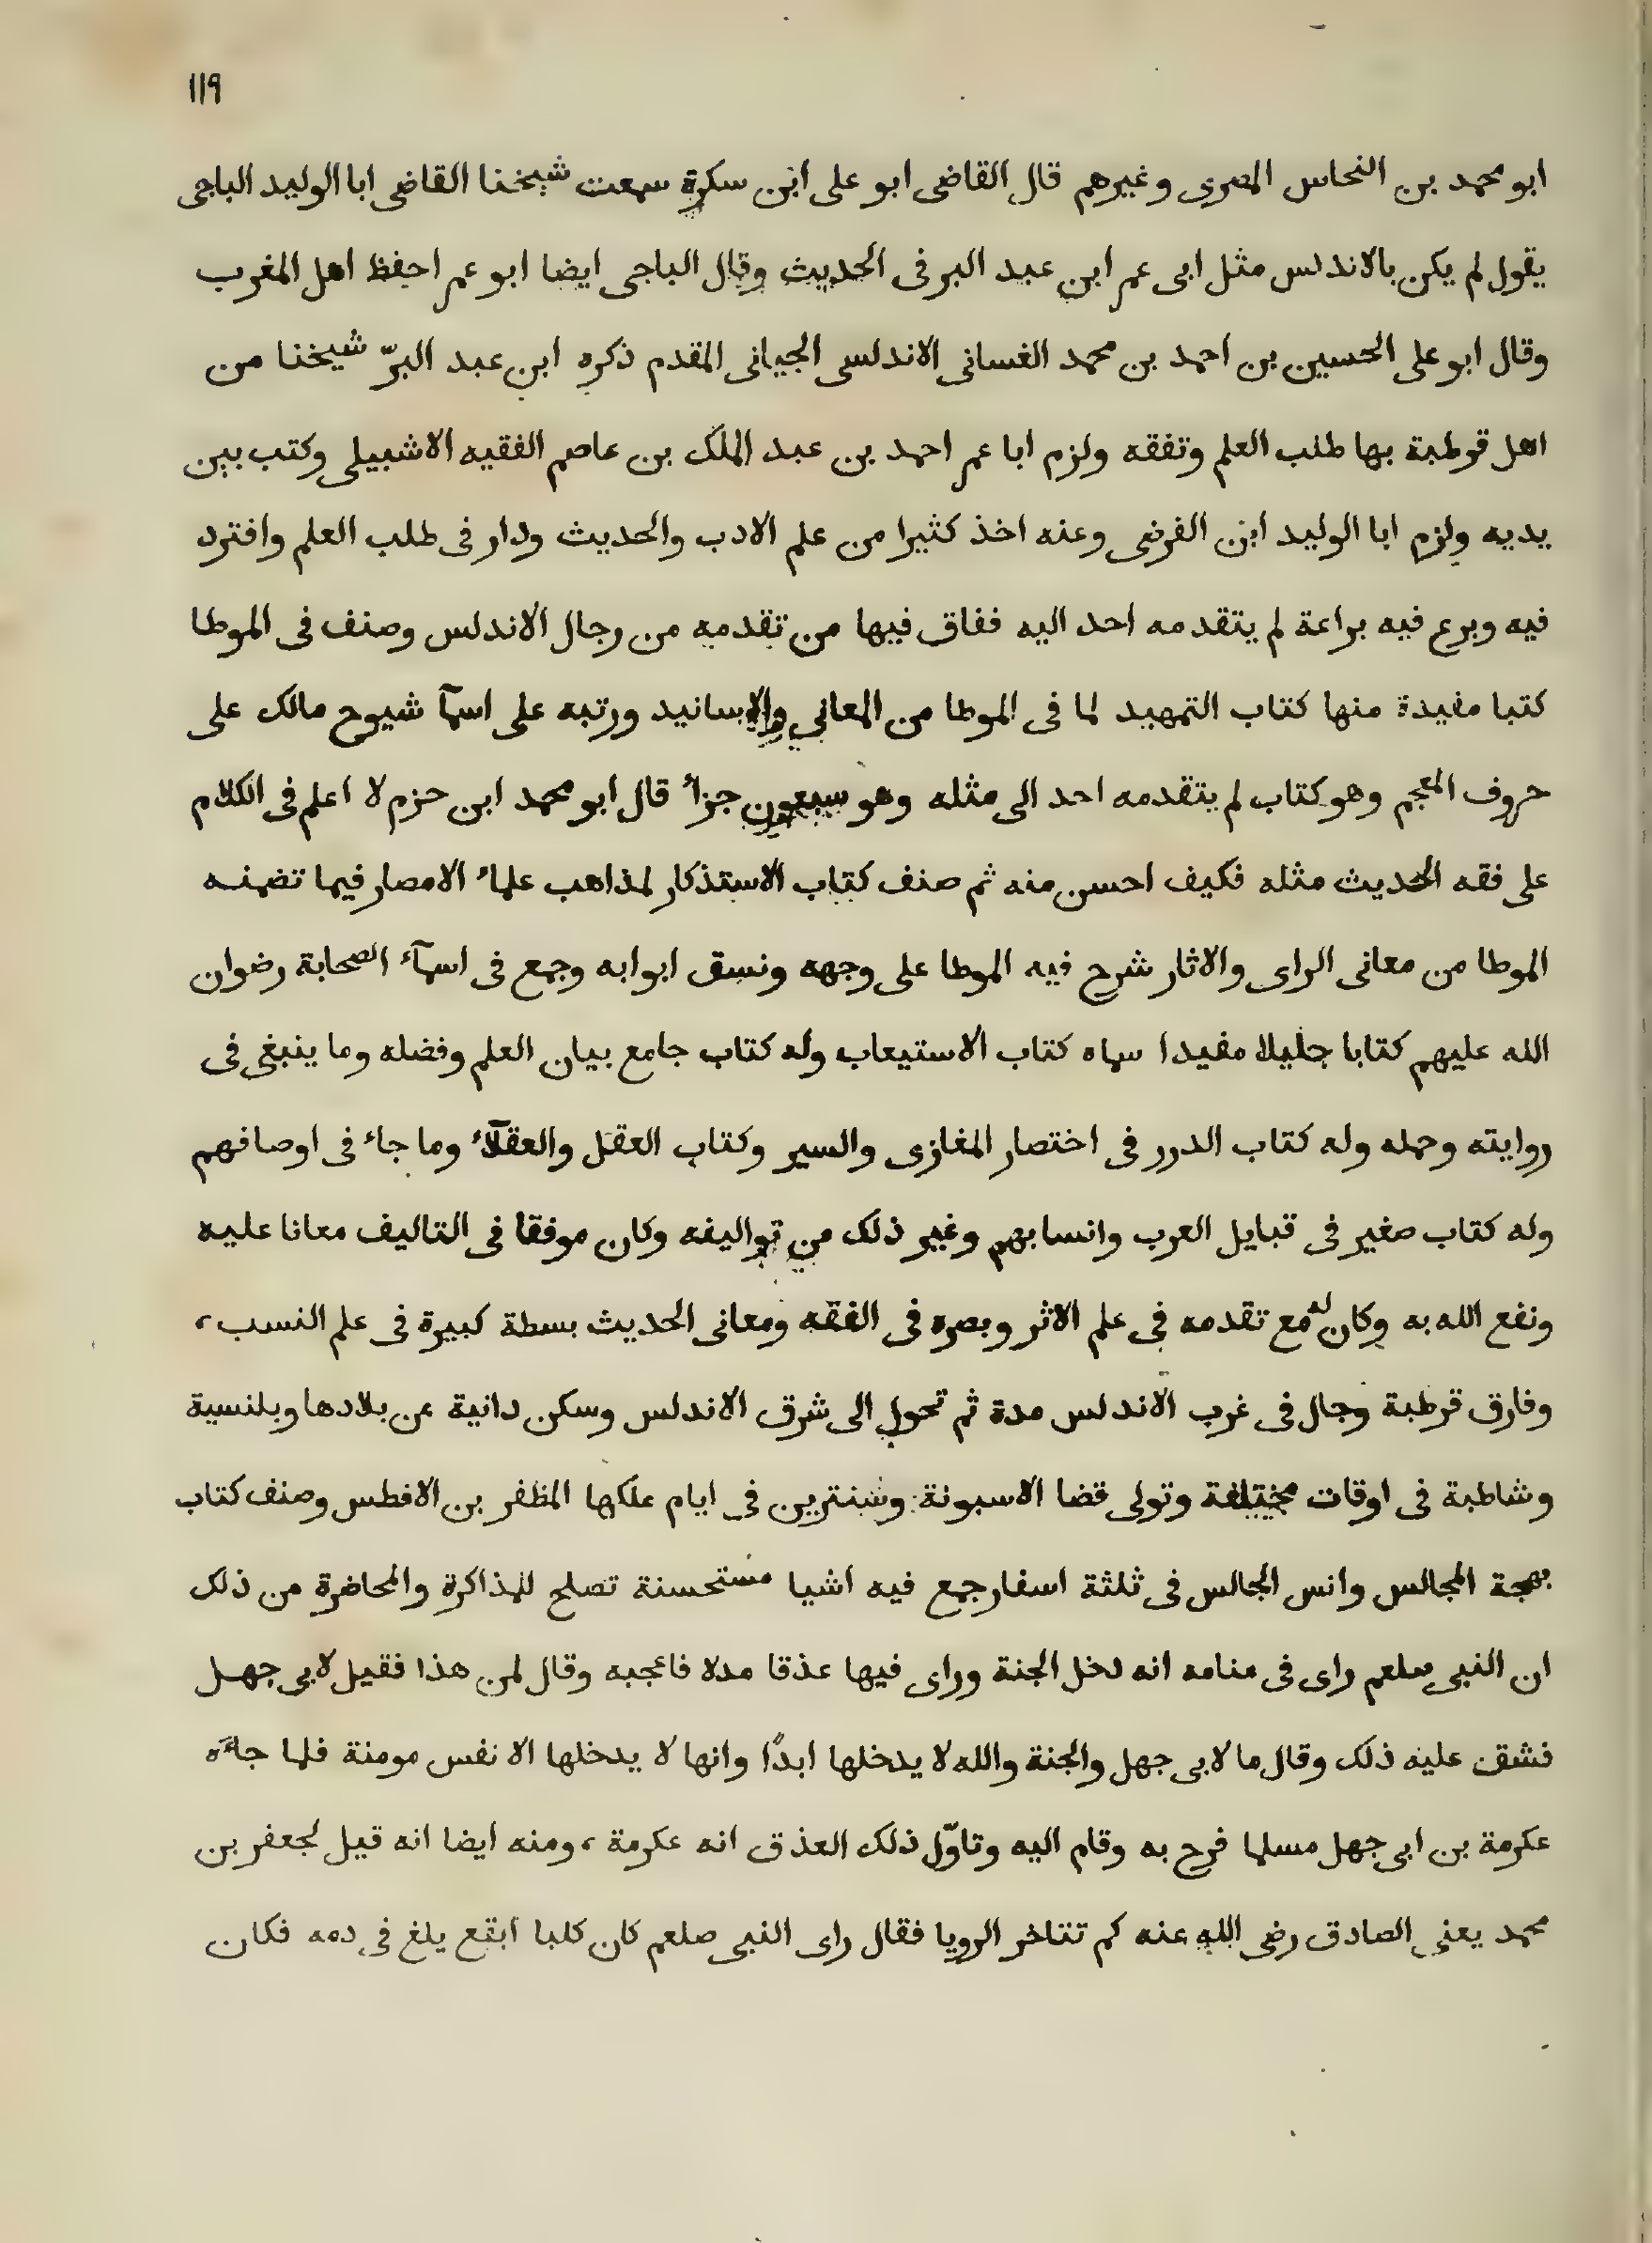 ١١٩
ابو محمد بن النحاس المصرى وغيرهم قال القاضى ابو على ابن سكرة سمعت شيخنا القاضى ابا الوليد الباجى
يقول لم يكن بالاندلس مثل ابى عمر ابن عبد البر فى الحديث وقال الباجى ايضا ابو عمر احفظ اهل المغرب
وقال ابو على الحسين بن احمد بن محمد الغسانى الاندلسى الجيانى المقدم ذكره ابن عبد البرّ شيخنا من
اهل قوطبة بها طلب العلم وتفقه ولزم ابا عمر احمد بن عبد الملك بن عاصم الفقيه الاشبيلى وكتب بين
يديه ولزم ابا الوليد ابن الفرضى وعنه اخذ كثيرا من علم الادب والحديث ودار فى طلب العلم وافترد
فيه وبرع فيه براعة لم يتقدمه احد اليه ففاق فيها من تقدمه من رجال الاندلس وصنف فى الموطا
كتبا مفيدة منها كتاب التمهيد لما فى الموطا من المعاني والاسانيد ورتبه على اسمآ شيوح مالك على
حروف المعجم وهو كتاب لم يتقدمه احد الى مثله وهو سبعون جزأ قال ابو محمد ابن حزم لا اعلم فى الكلام
على فقه الحديث مثله فكيف احسن منه ثم صنف كتاب الاستذكار لمذاهب علماء الامصار فيما تضمنه
الموطا من معانى الراى والاثار شرح فيه الموطا على وجهه ونسق ابوابه وجمع فى اسمآء الصحابة رضوان
الله عليهم كتابا جليلا مفيدا سماه كتاب الاستيعاب وله كتاب جامع بيان العلم وفضله وما ينبغى فى
روايته وحمله وله كتاب الدرر فى اختصار المغازى والسير وكتاب العقل والعقلآء وما جاء فى اوصافهم
وله كتاب صغير فى قبايل العرب وانسابهم وغير ذلك من تواليفه وكان موفقا فى التاليف معانا عليه
ونفع الله به وكان له مع تقدمه فى علم الاثر وبصره فى الفقه ومعانى الحديث بسطة كبيرة فى علم النسب،
وفارق قرطبة وجال فى غرب الاندلس مدة ثم تحول الى شرق الاندلس وسكن دانية من بلادها وبلنسية
وشاطبة فى اوقات مختلفة وتولى قضا الاسبونة وشنترين فى ايام ملكها المظفر بن الافطس وصنف كتاب
بهجة المجالس وانس المجالس فى ثلثة اسفار جمع فيه اشيا مستحسنة تصلح للمذاكرة والمحاضرة من ذلك
ان النبى صلعم راى فى منامه انه دخل الجنة وراى فيها عذقا مدلا فاعجبه وقال لمن هذا فقيل لابى جهل
فشق عليه ذلك وقال ما لابى جهل والجنة والله لا يدخلها ابدًا وانها لا يدخلها الا نفس مومنة فلما جاءَه
عكرمة بن ابى جهل مسلما فرح به وقام اليه وتاوّل ذلك العذق انه عكرمة، ومنه ايضا انه قيل لجعفر بن
محمد يعنى الصادق رضى الله عنه كم تتاخر الرويا فقال راى النبى صلعم كان كلبا ابقع يلغ فى دمه فكان